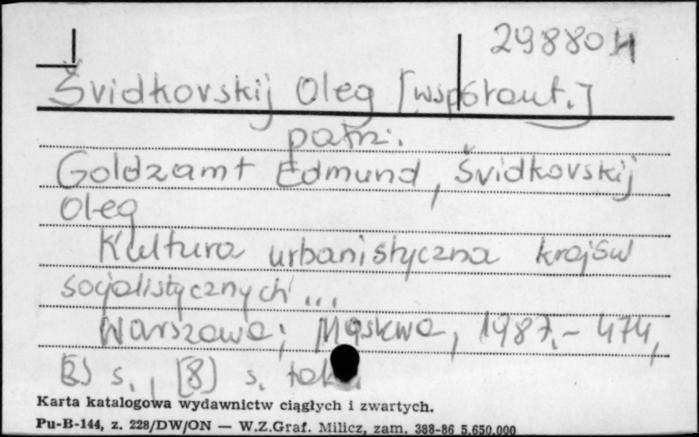 29880 H
Švidkovskij Oleg [współaut.]
patrz:
Goldzamt Edmund, Švidkovskij
Oleg
Kultura urbanistyczna krajów
socjalistycznych ...
Warszawa; Moskwa, 1987. - 474,
s., [8] s. tabl.
Karta katalogowa wydawnictw ciągłych i zwartych.
Pu-B-144, z. 228/DW/ON — W.Z.Graf. Milicz, zam. 388-86 5.650.000